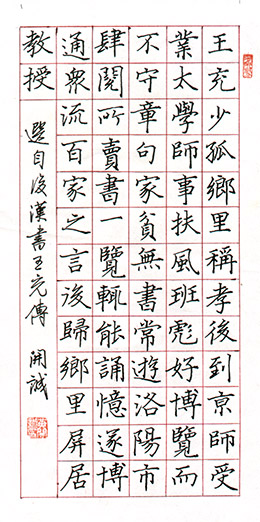 王充少孤鄉里稱孝後到京師受
業太學師事扶風班彪好博覽而
不守章句家貧無書常遊洛陽市
肆閱所賣書一覽輒能誦憶遂博
通衆流百家之言後歸鄉里屏居
教授
選自後漢書王充傳 開誠